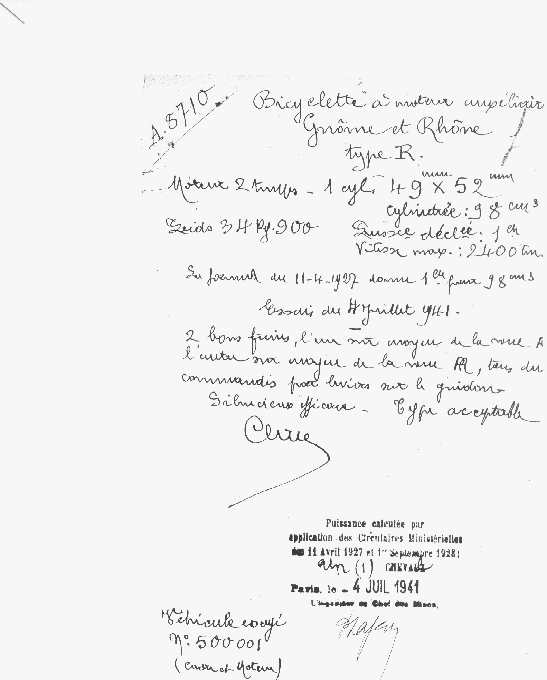 A.5710
Bicyclette à moteur auxiliaire
Gnôme et Rhône
type R.
Moteur 2 temps - 1 cyl. 49 mm X 52 mm
cylindrée : 98 cm3
Poids 34 Kg.900 Puissance déclée : 1 ch
Vitesse max. : 2400 tm.
La formule du 11-4-1927 donne 1 ch pour 98 cm3
Essais du 4 Juillet 1941.
2 bons freins, l'un sur moyeu de la roue A
l'autre sur moyeu de la roue AR, tous du
commandés par leviers sur le guidon
Silencieux efficace - Type acceptable
Puissance calculée par
application des Circulaires Ministérielles
des 11 Avril 1927 et 1er Septembre 1928:
un (1) CHEVAUX
Paris, le - 4 JUIL 1941
L'Ingénieur en Chef des Mines,
Véhicule essayé
N° 500001
(cadre et Moteur)